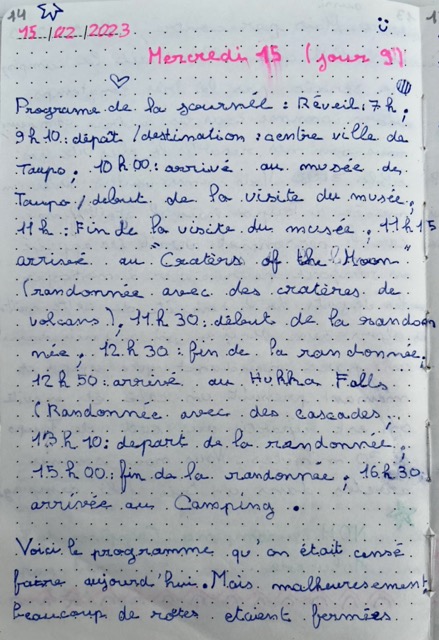 14
15/02/2023
Mercredi 15 (jour 9)
Programe de la journéé : Réveil : 7h ;
9h10 : dépat / destination : centre ville de
Taupo ; 10h00 : arrivé au musée de
Taupo / début de la visite du musée ;
11h : Fin de la visite du musée ; 11h15
arrivé au "Craters of the Moon"
(randonnée avec des cratères de
volcans) ; 11h30 : début de la randon
née ; 12h30 : fin de la randonnée ;
12h50 : arrivé au Hukka Falls
(Randonnée avec des cascades ;
13h10 : depart de la randonnée ;
15h00 : fin de la randonnée ; 16h30
arrivée au Camping .
Voici le programme qu'on était censé
faire aujourd'hui. Mais malheuresement
beaucoup de rotes etaient fermées.